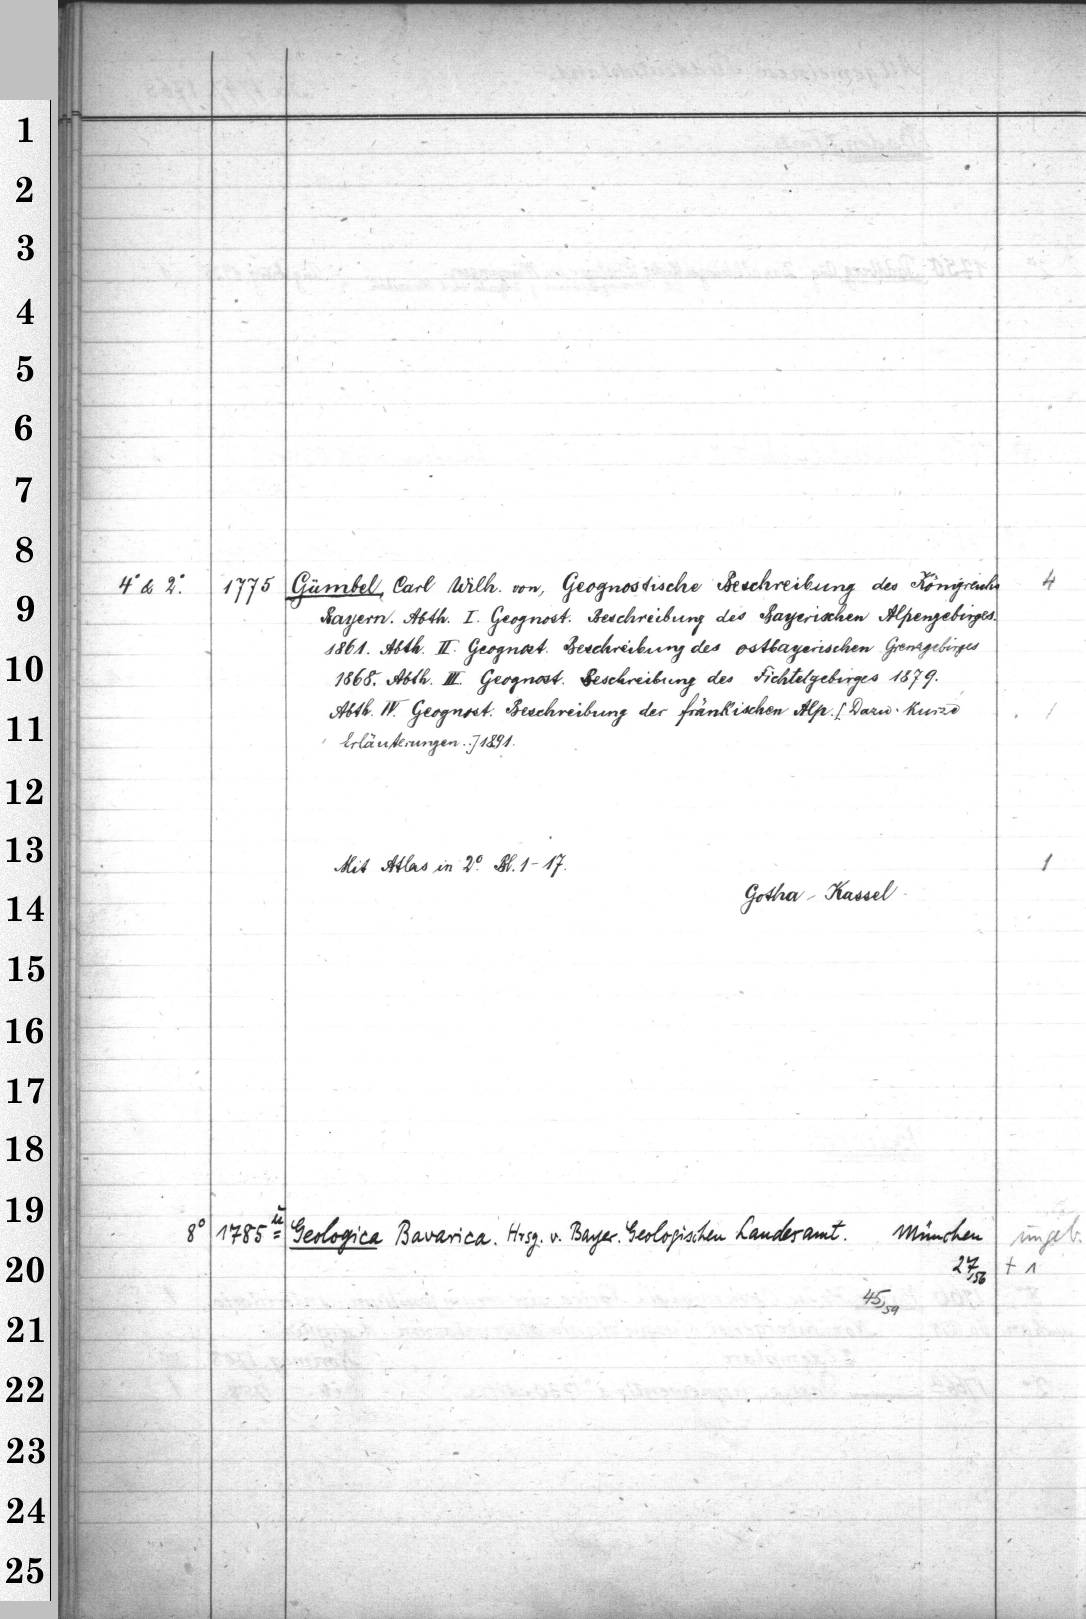 1
2
3
4
5
6
7
8
9
10
11
12
13
14
15
16
17
18
19
20
21
22
23
24
25
4° & 2°. 1775 Gümbel, Carl Wilh. von, Geognostische Beschreibung des Königreichs 4
Bayern. Abth. I. Geognost. Beschreibung des Bayerischen Alpengebirges.
1861. Abth. II. Geognost. Beschreibung des ostbayerischen Grenzgebirges
1868. Abth. III. Geognost. Beschreibung des Fichtelgebirges 1879.
Abth. IV. Geognost. Beschreibung der fränkischen Alp. [Dazu: Kurze 1
Erläuterungen..] 1891.
Mit Atlas in 2°. Bl. 1-17. 1
Gotha - Kassel
8° 1785 ü Geologica Bavarica. Hrsg. v. Bayer. Geologischen Landesamt. München ungeb.
27/56 + 1
45/59